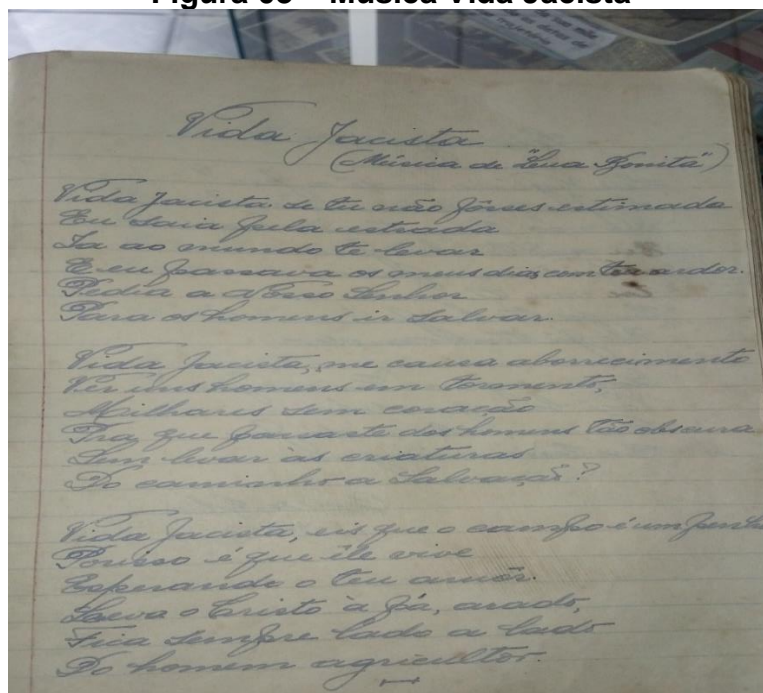 Vida Jacista
(Música de "Lua Bonita")
Vida Jacista se tu não fôsses estimada
Eu saia pela estrada
Ia ao mundo te levar
E eu passava os meus dias com teu ardor.
Pedia a Nosso Senhor
Para os homens ir salvar.
Vida Jacista, me causa aborrecimento
Ver uns homens em tormento,
Milhares sem coração
que passaste dos homens tão obscura
Sem levar às criaturas
Do caminho a Salvação?
Vida Jacista, eis que o campo é um
Por isso é que êle vive
Esperando o teu amôr.
Louva o Cristo à pá, arado,
Fica sempre lado a lado
Do homem agricultor.